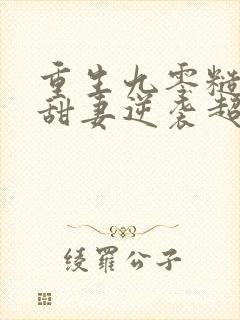 重生九零糙
甜妻逆袭超
绫罗公子